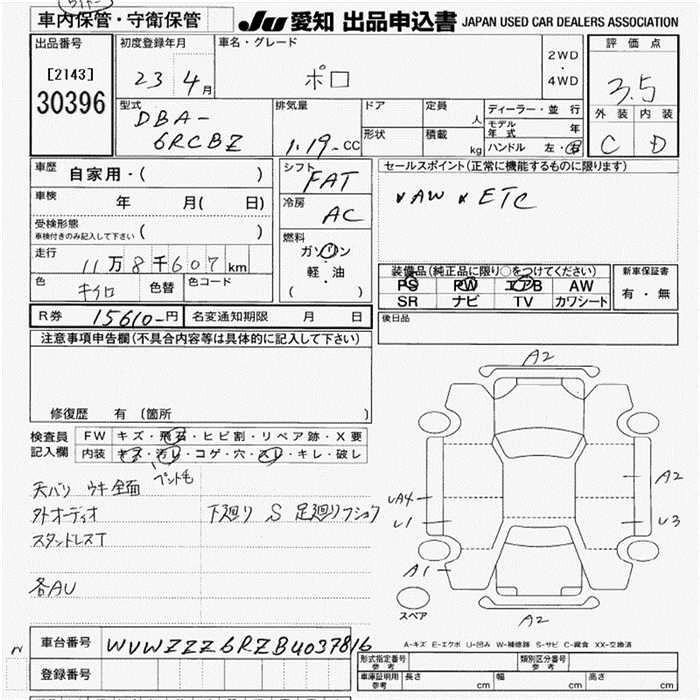 車内保管・守衛保管
JU 愛知 出品申込書 JAPAN USED CAR DEALERS ASSOCIATION
出品番号
[2143]
30396
初度登録年月
23 4月
車名・グレード
ポロ
2WD
・
4WD
評価点
3.5
外装 内装
C D
型式
DBA-
6RCBZ
排気量
1.19-CC
ドア
定員
人
形状
積載
kg
ディーラー・並行
モデル年式
年
ハンドル 左・右
車歴
自家用・( )
車検
年 月( 日)
受検形態
車検付きのみ記入して下さい ( )
走行
11万8千607km
色
キイロ
色替
色コード
シフト
FAT
冷房
AC
燃料
ガソリン
・
軽・油
( )
セールスポイント(正常に機能するものに限ります)
×AW ×ETC
装備品(純正品に限り○をつけてください)
PS PW エアB AW
SR ナビ TV カワシート
新車保証書
有・無
R券
15610-円
名変通知期限 月 日
後日品
注意事項申告欄(不具合内容等は具体的に記入して下さい)
修復歴 有(箇所 )
検査員
記入欄
FW キズ・飛石・ヒビ割・リペア跡・X要
内装 キズ・汚レ・コゲ・穴・スレ・キレ・破レ
ペント毛
天バリ ウキ全面
外オーディオ 下廻り S 足廻りフショク
スタンドレスT
各AU
A2
A2
UA4
U1
U3
A1
A2
スペア
A-キズ E-エクボ U-凹み W-補修跡 S-サビ C-腐食 XX-交換済
車台番号
WVWZZZ6RZBU037816
登録番号
形式指定番号
参考
類別区分番号
参考
車庫証明用
参考
長さ cm 幅 cm 高さ cm
N